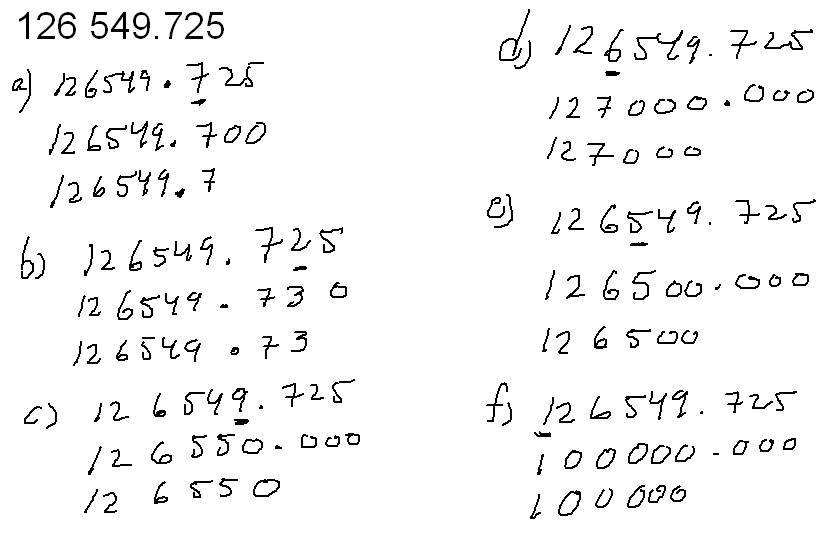 126 549.725
a) 126549.725
126549.700
126549.7
b) 126549.725
126549.730
126549.73
c) 126549.725
126550.000
126550
d) 126549.725
127000.000
127000
e) 126549.725
126500.000
126500
f) 126549.725
100000.000
100000